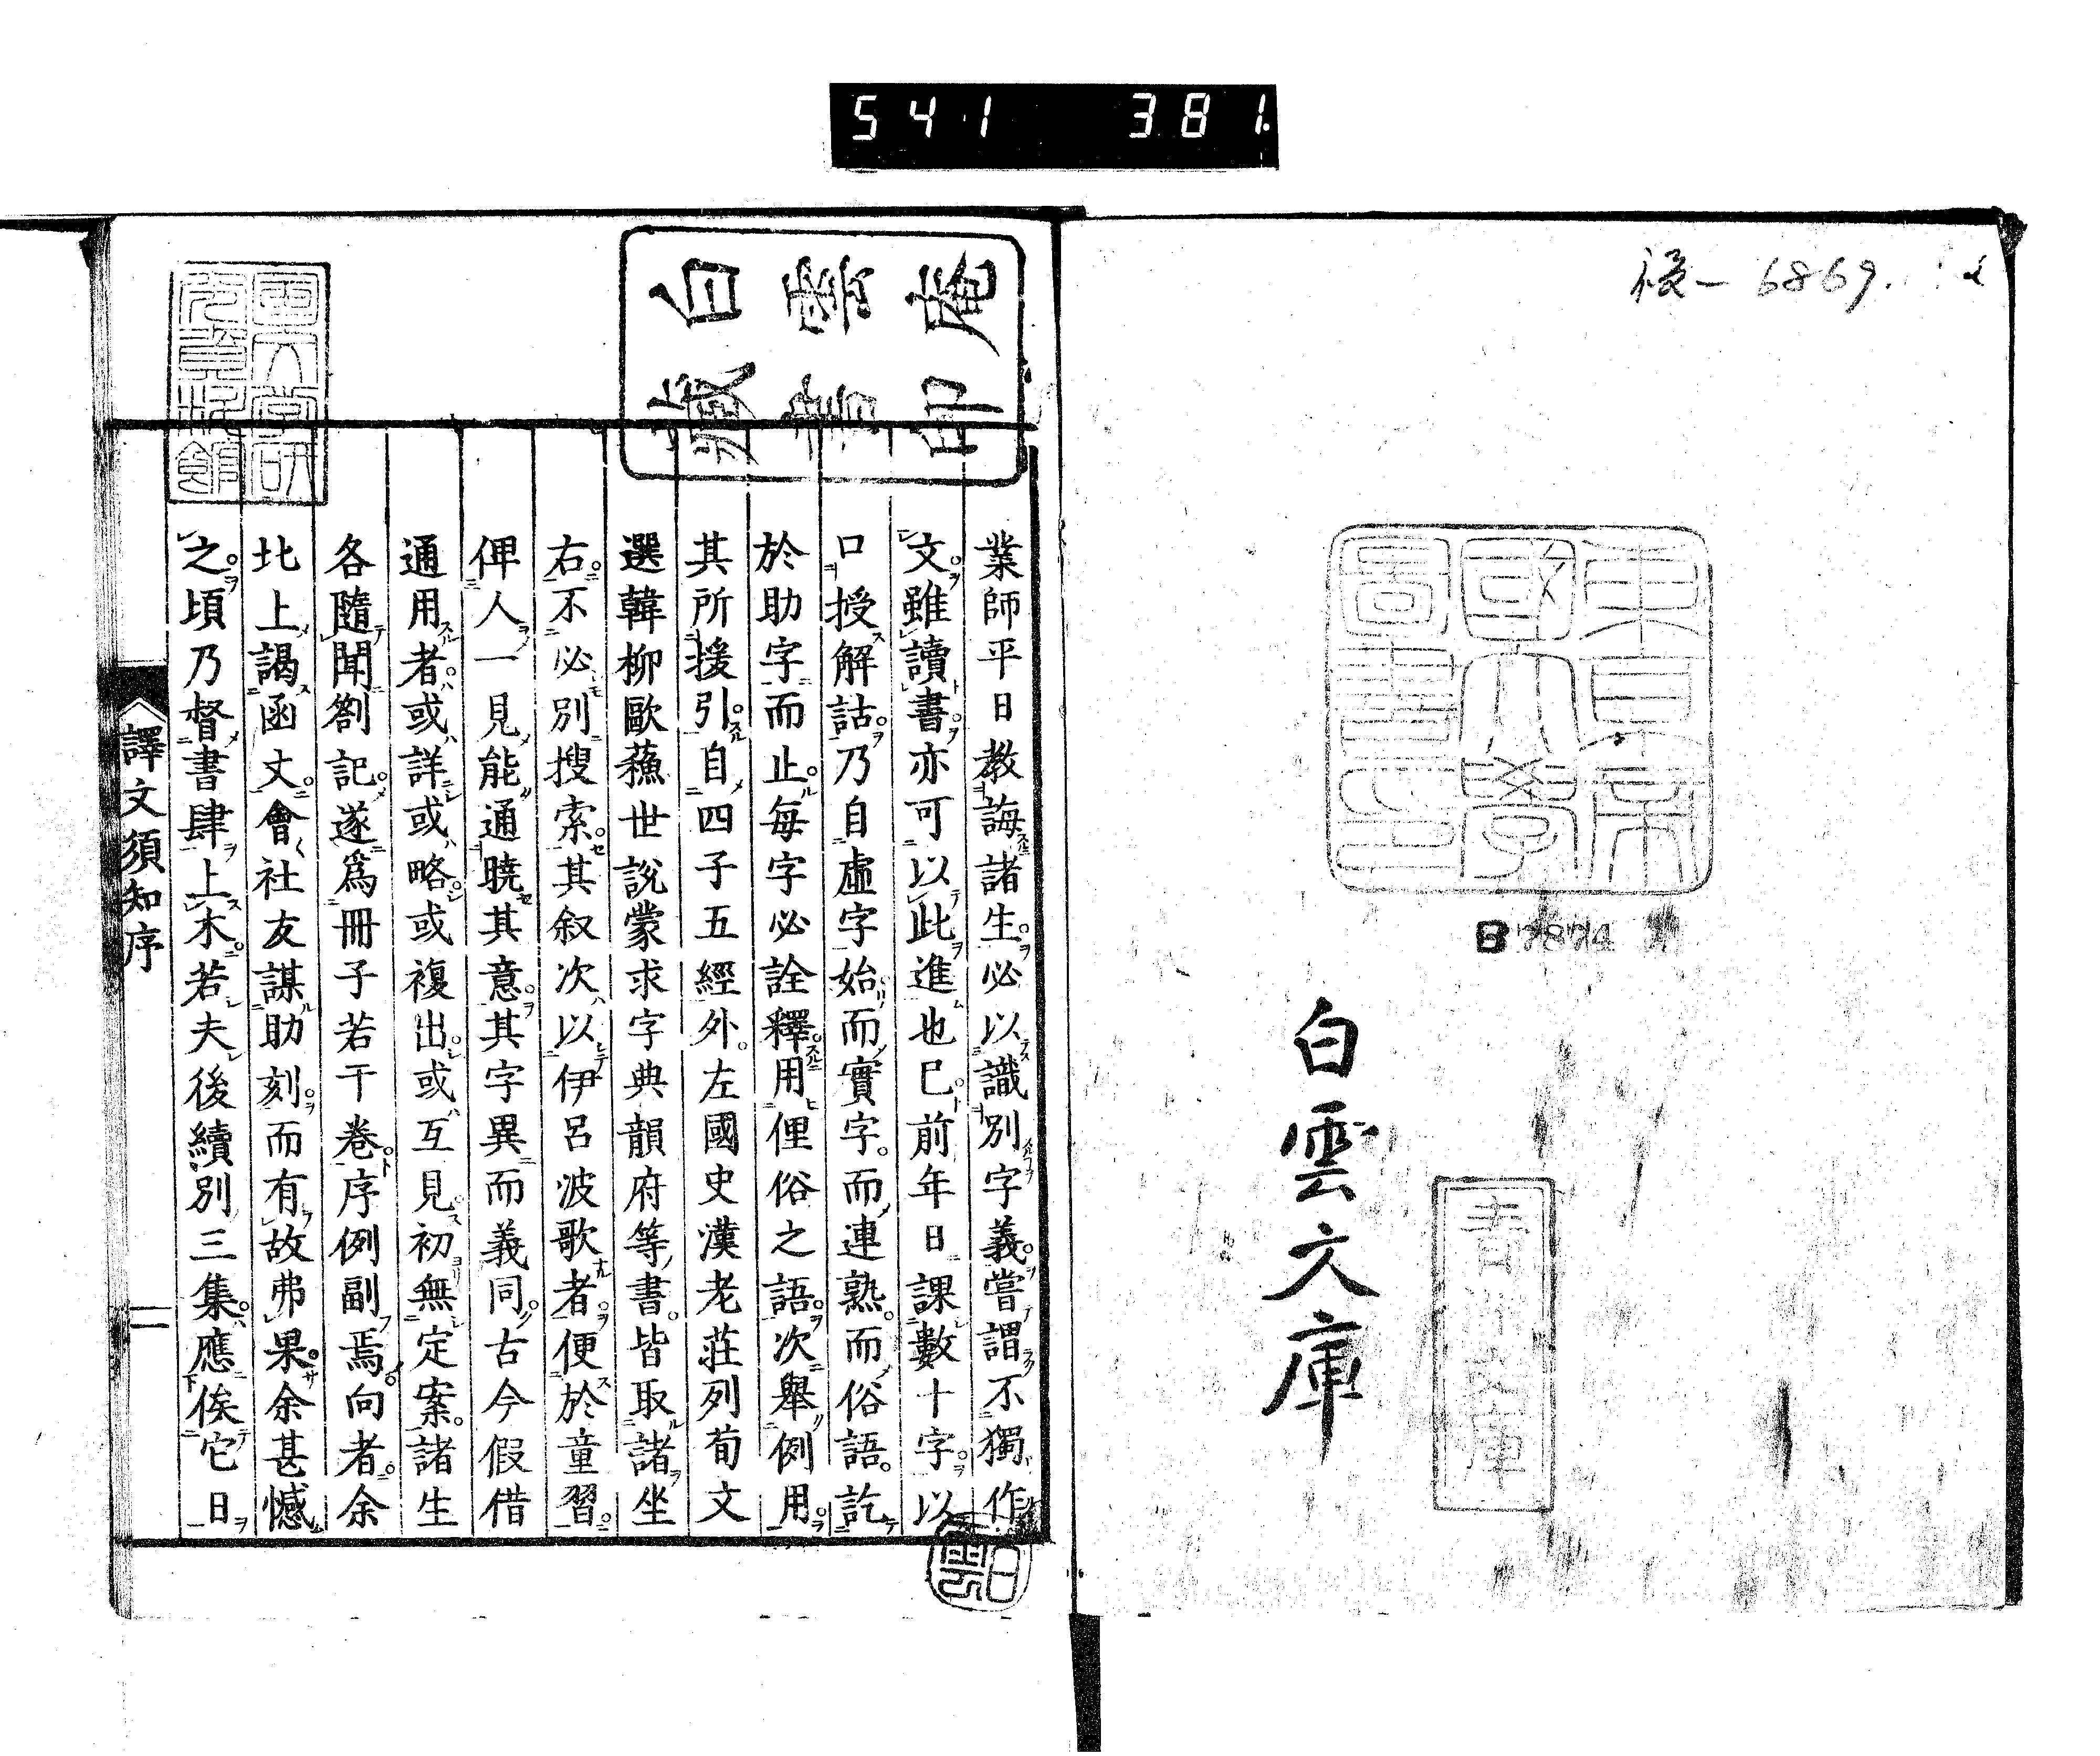 541 381
6869.
東京帝
國大學
圖書之
7874
白雲文庫
青洲文庫
白雲庵
藏書印
業師平日教誨諸生必以識別字義嘗謂不獨作
文雖讀書亦可以此進也已前年日課數十字以
口授解詁乃自虛字始而實字而連熟而俗語訖
於助字而止每字必詮釋用俚俗之語次舉例用
其所援引自四子五經外左國史漢老莊列荀文
選韓柳歐蘓世說蒙求字典韻府等書皆取諸坐
右不必別搜索其叙次以伊呂波歌者便於童習
俾人一見能通曉其意其字異而義同古今假借
通用者或詳或略或複出或互見初無定案諸生
各隨聞劄記遂爲冊子若干卷序例副焉向者余
北上謁函丈會社友謀助刻而有故弗果余甚憾
之頃乃督書肆上木若夫後續別三集應俟它日
譯文須知序
一